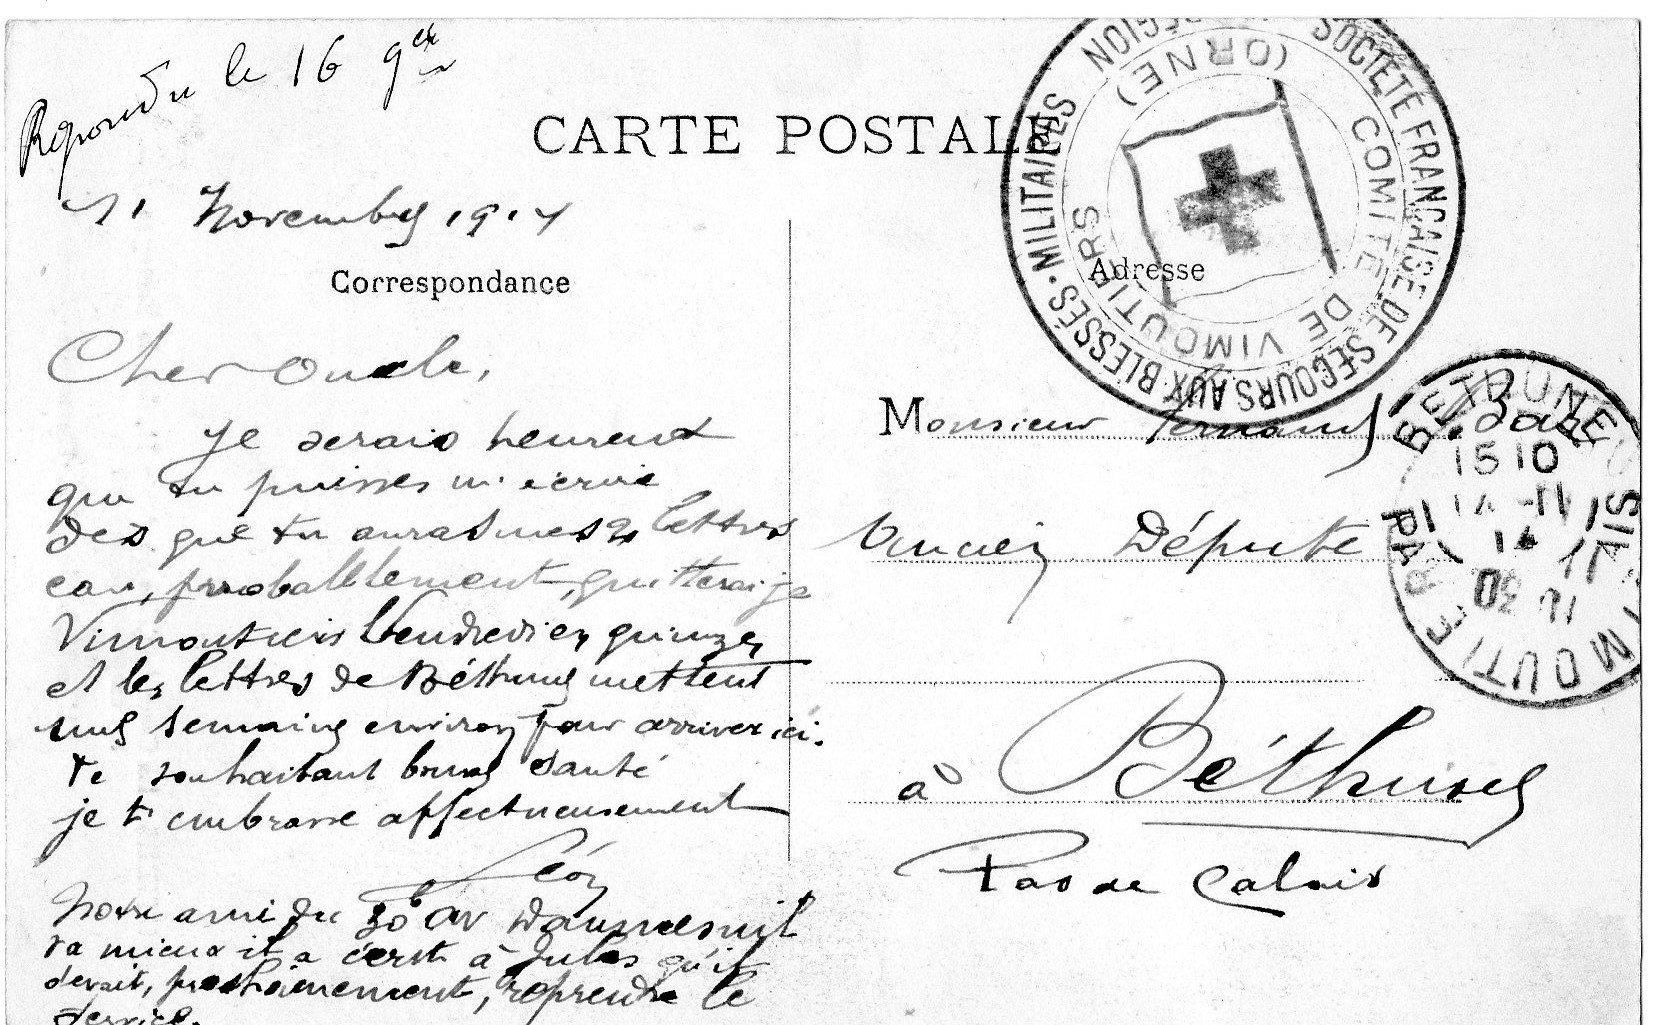 Repondu le 16 9bre
CARTE POSTALE
11 Novembre 1914
Correspondance
Cher Oncle,
Je serais heureux
que tu puisses m'écrire
dès que tu auras mes lettres
car, probablement, quitterai je
Vimoutiers Vendredi en quinze
et les lettres de Béthune mettent
une semaine environ pour arriver ici.
Te souhaitant bonne santé
je t'embrasse affectueusement
Léon
Notre ami du 30 av Daumesnil
va mieux il a écrit à Jules qu'il
devait, prochainement, reprendre le
service.
SOCIÉTÉ FRANÇAISE DE SECOURS AUX BLESSÉS MILITAIRES
RÉGION
COMITÉ DE VIMOUTIERS
(ORNE)
Adresse
Monsieur Fernand
Ancien Député
à Béthune
Pas de Calais
BETHUNE
15 10
PAS
VIMOUTIERS